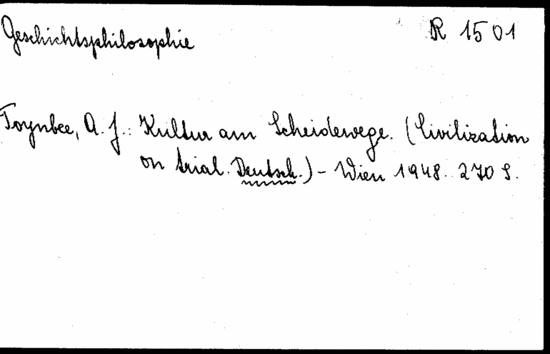 Geschichtsphilosophie R 1501
Toynbee, A. J.: Kultur am Scheidewege. (Civilization
on trial. Deutsch.) - Wien 1948. 270 S.